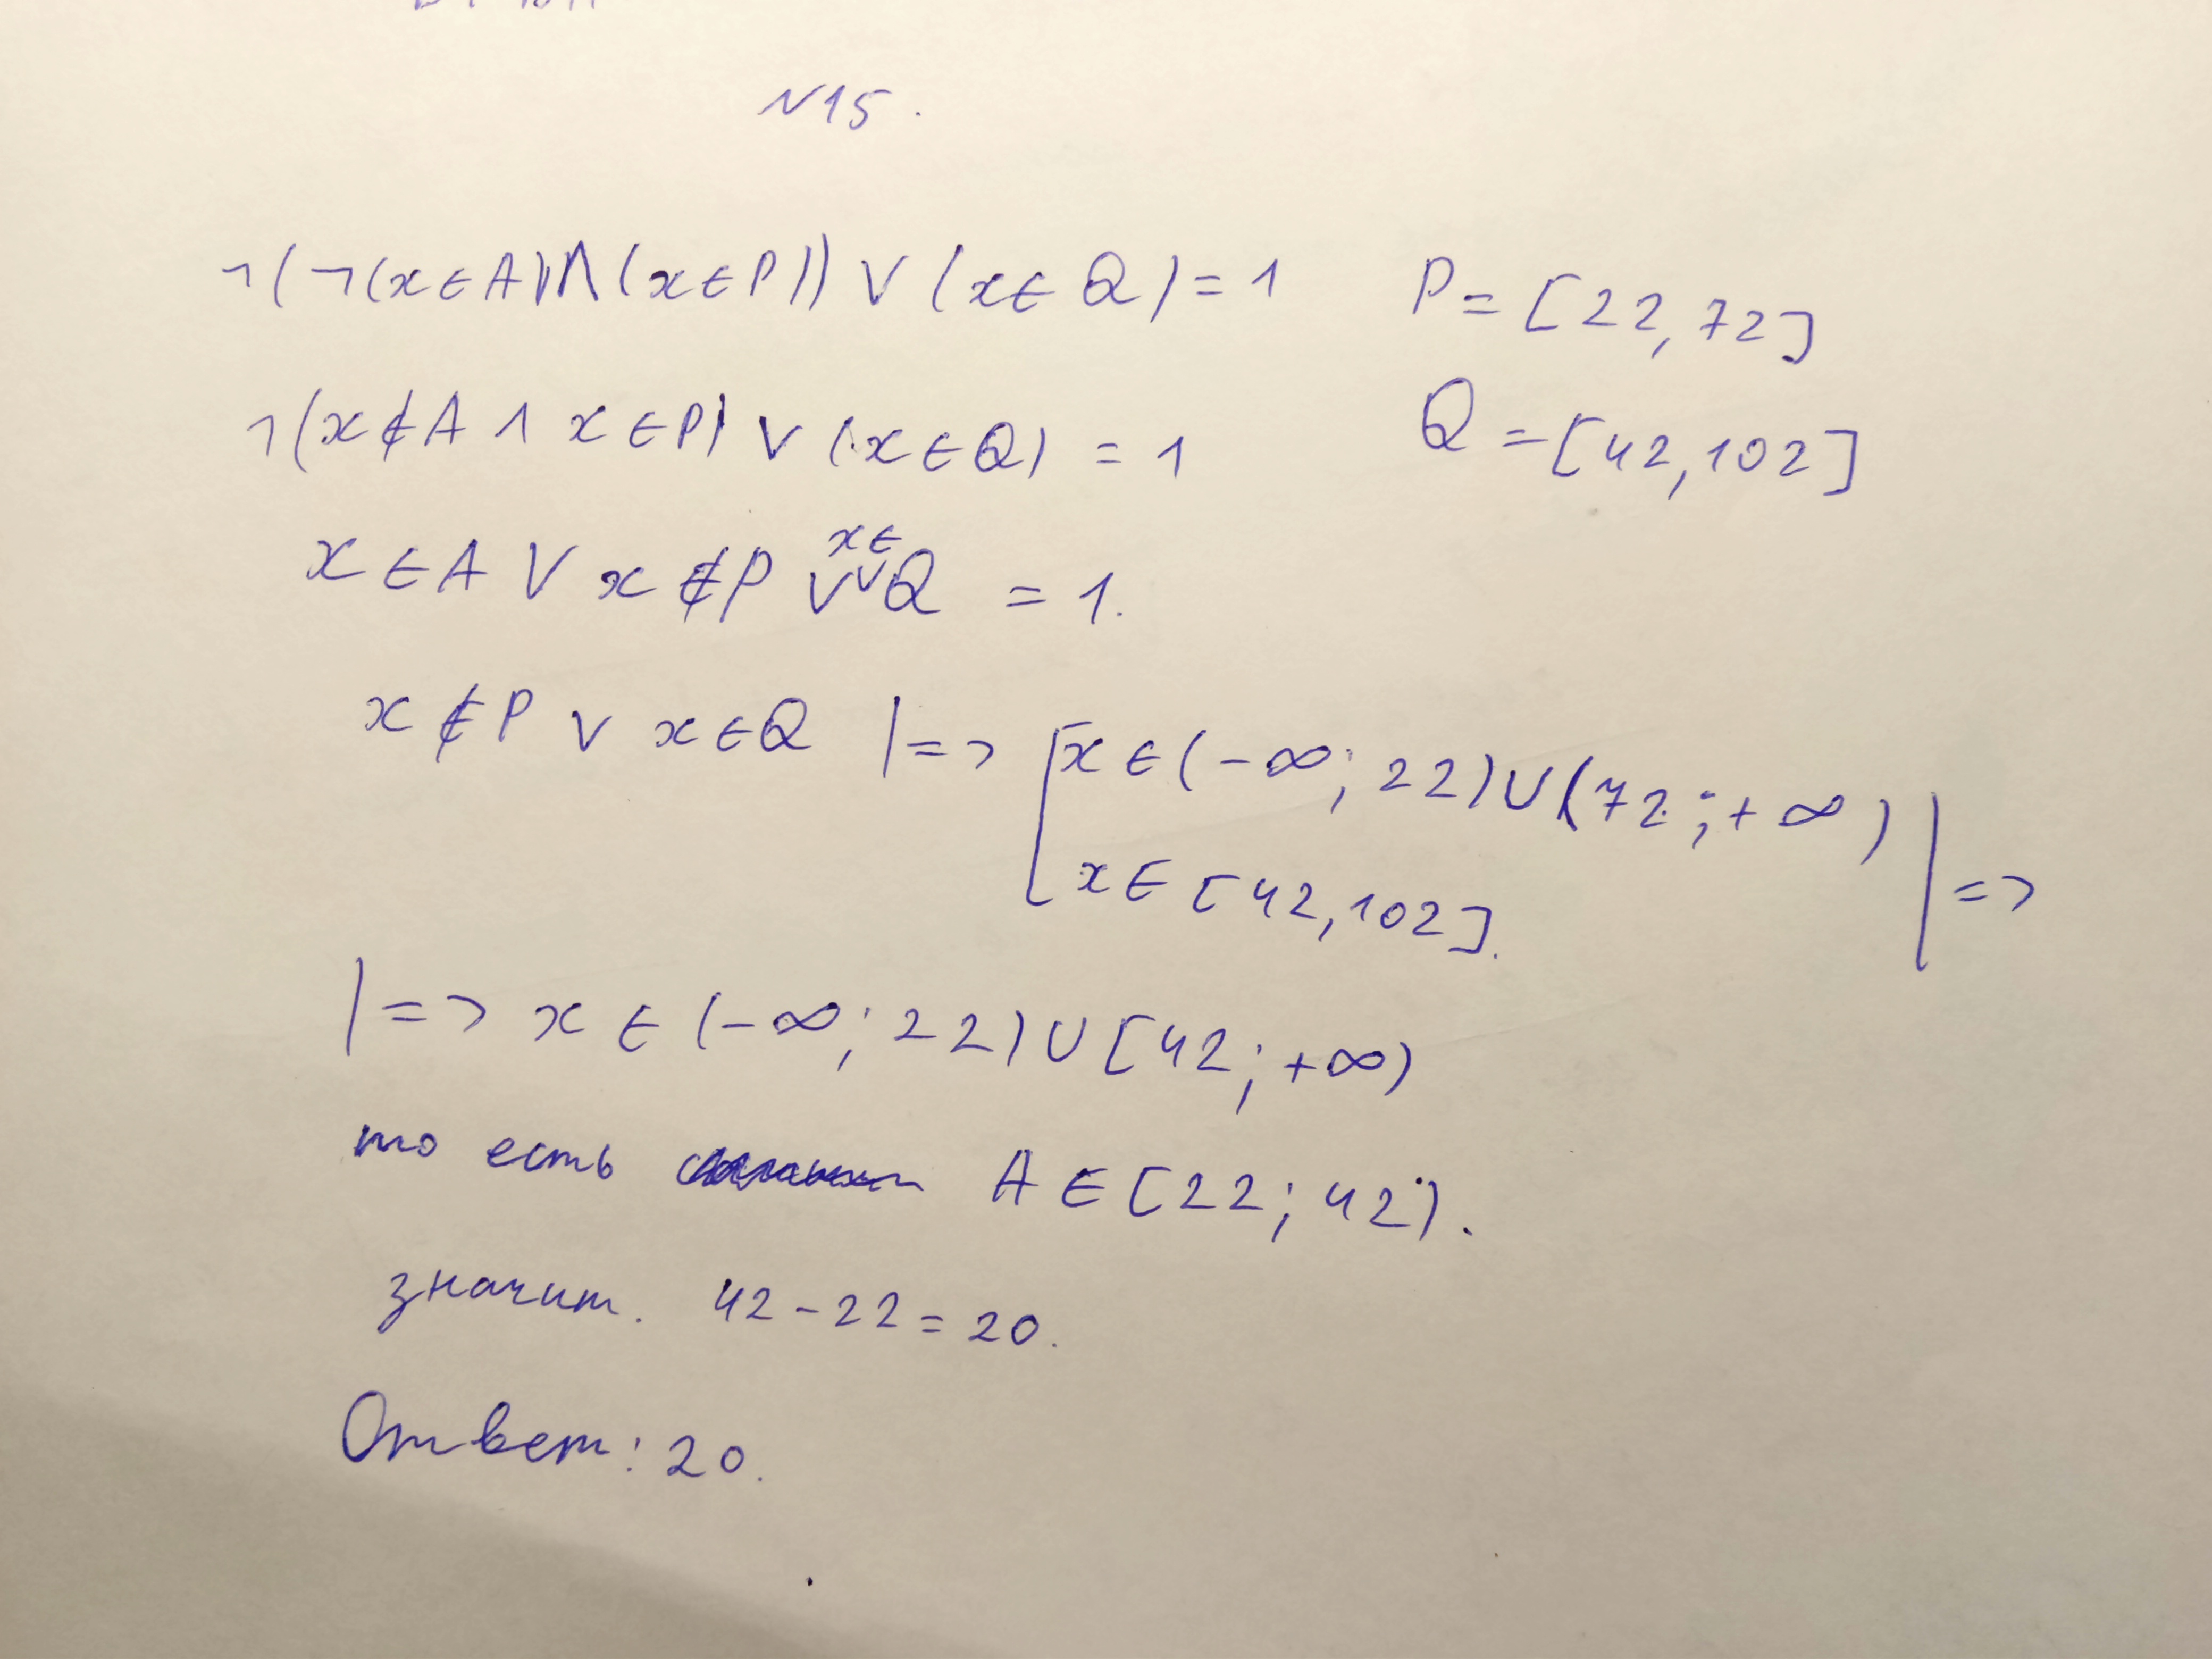 №15.
¬(¬(x∈A)∧(x∈P)) ∨ (x∈Q)=1 P=[22,72]
¬(x∉A ∧ x∈P) ∨ (x∈Q) = 1 Q=[42,102]
x∈A ∨ x∉P ∨ x∈Q = 1.
x∉P ∨ x∈Q |=> [x∈(-∞; 22)∪(72;+∞) |=>
x∈[42,102].
|=> x∈(-∞; 22)∪[42;+∞)
то есть A∈[22; 42).
значит. 42-22=20.
Ответ: 20.